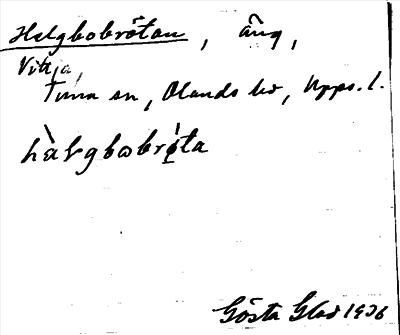 Helgbobrötan, äng,
Vittja,
Tuna sn, Olands hd, Upps. l.
hàlgbobrö́ta
Gösta Glad 1936